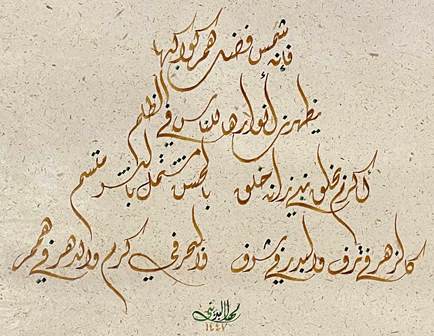 فإنه شمس فضل هم كواكبها
يظهرن أنوارها للناس في الظلم
أكرم بخلق نبي زانه خلق بالحسن مشتمل بالبشر متسم
كالزهر في ترف والبدر في شرف والبحر في كرم والدهر في همم
١٤٤٧